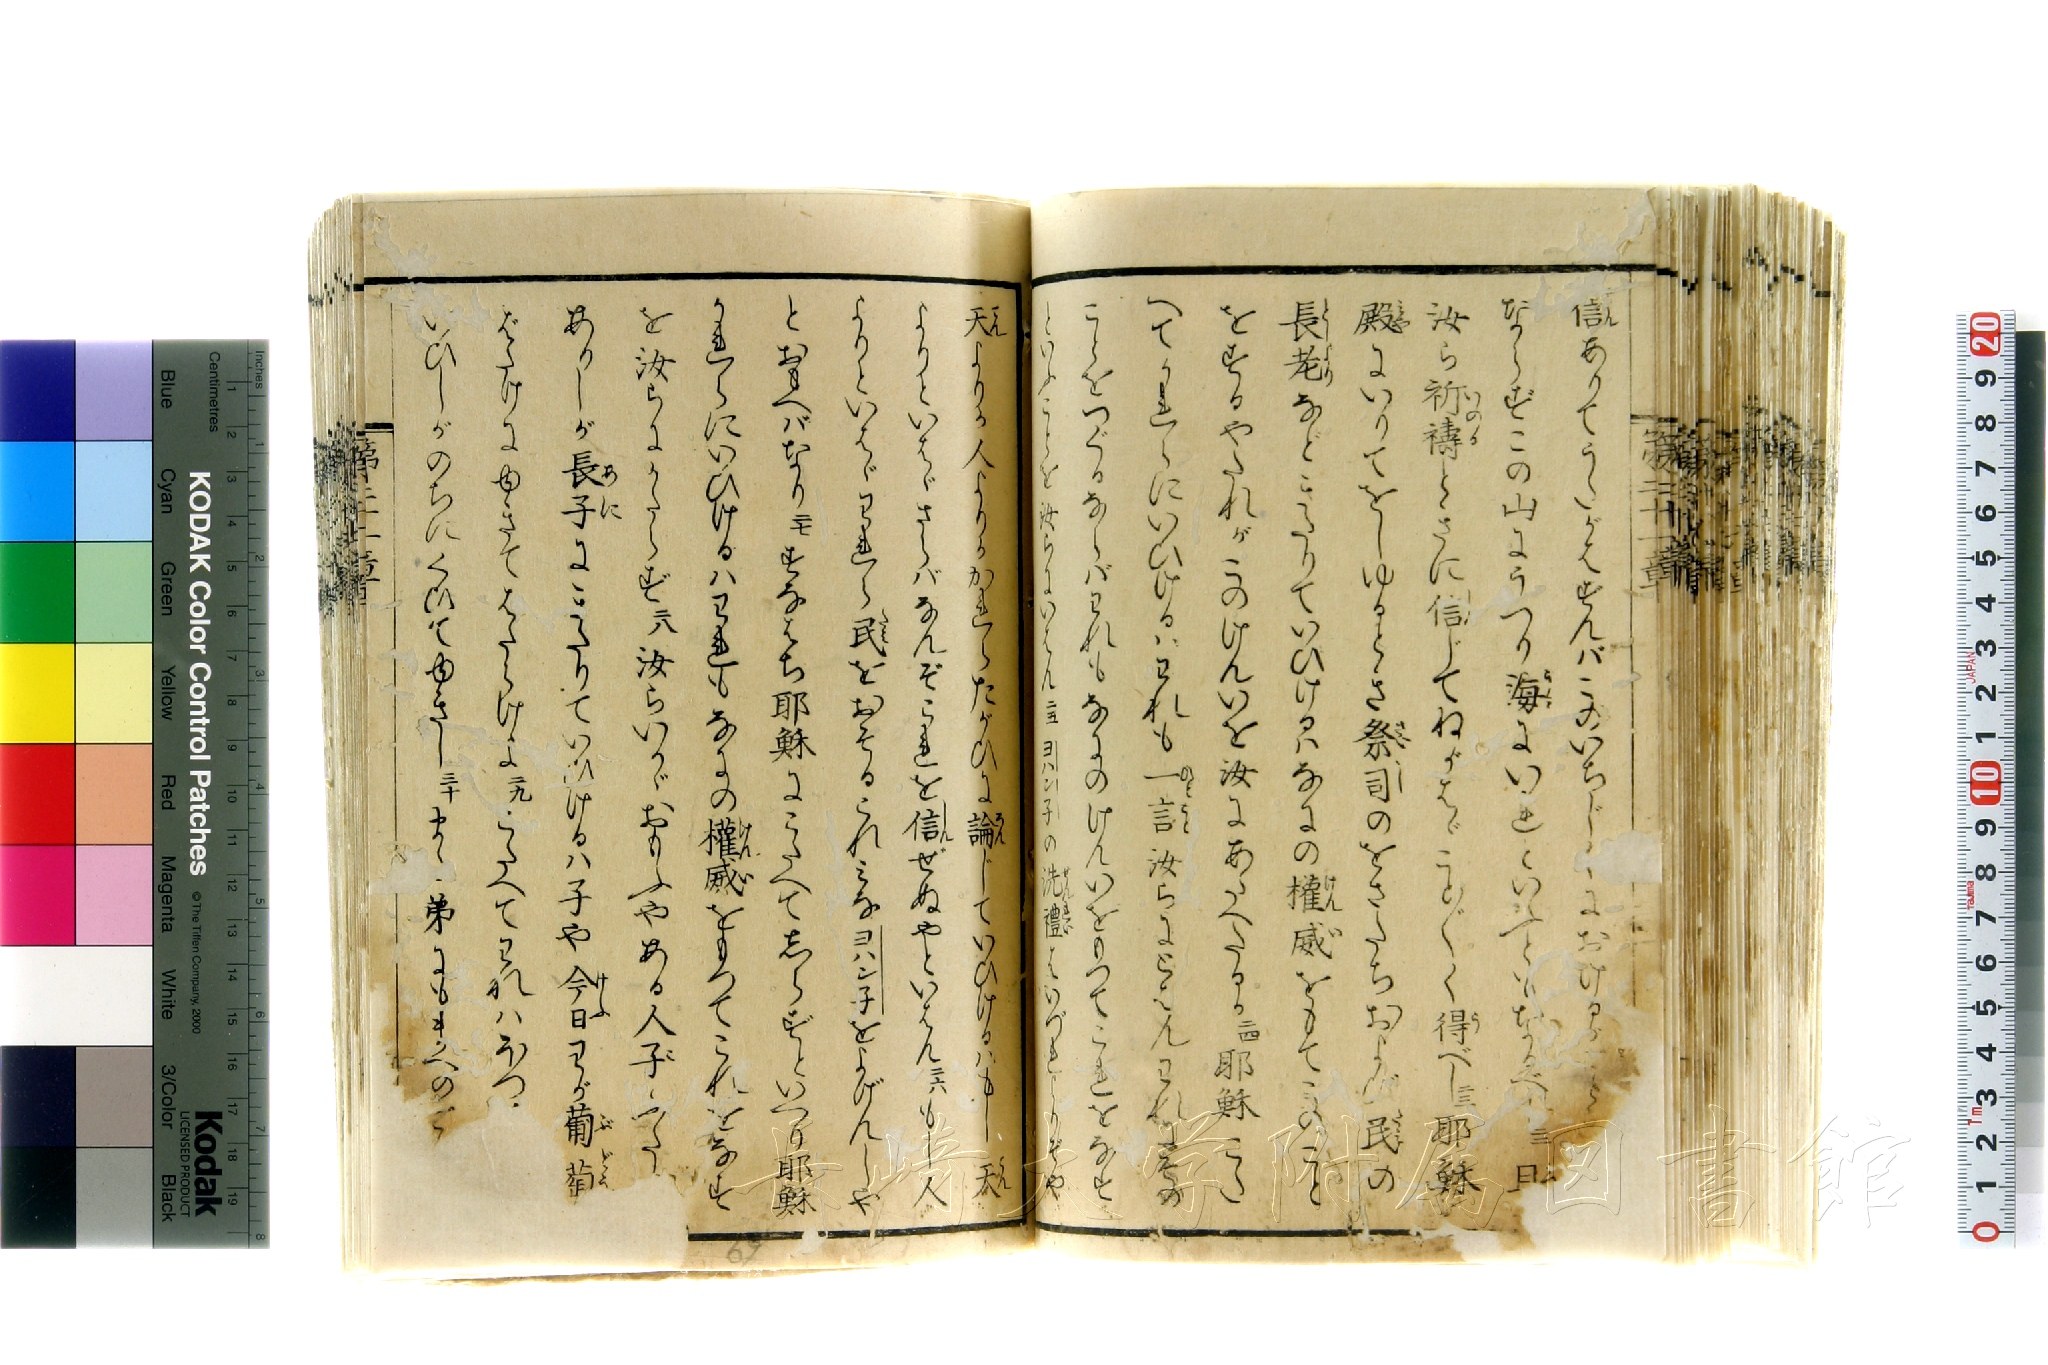 信ありてうたがはずんバこのいちじくにおけるごと
ならずこの山にうつり海にいれといふともなるべし
汝ら祈禱ときに信じてねがはゞことごとく得べし 二三 耶穌
殿にいりてをしゆるとき祭司のをさたちおよび民の
長老などきたりていひけるハなにの權威をもてこのこと
をするやたれがこのけんいを汝にあたへたるか 二四 耶穌こた
へてかれらにいひけるハわれも一言汝らにとはんわれに
ことをつぐるならバわれもなにのけんいをもつてこれをなす
といふことを汝らにいはん 二五 ヨハン子の洗禮はいづれよりぞや
天よりか人よりかかれらたがひに論じていひけるハもし天
よりといはゞさらバなんぞこれを信ぜぬやといはん 二六 もし人
よりといはゞわれら民をおそるこれみなヨハン子をよげんしや
とおもへバなり 二七 すなはち耶穌にこたへてしらずといへり耶穌
かれらにいひけるハわれもなにの權威をもつてこれをなす
を汝らにかたらず 二八 汝らいかゞおもふやある人子ふたり
ありしが長子にきたりていひけるハ子や今日わが葡萄
ばたけにゆきてはたらけよ 二九 こたへてわれハゆか
いひしがのちにくひてゆきし 三十 また弟にもまへのご
第二十一章
第二十一章
Centimetres
Inches
Blue
Cyan
Green
Yellow
Red
Magenta
White
3/Color
Black
KODAK Color Control Patches
©The Tiffen Company, 2000
Kodak
LICENSED PRODUCT
JAPAN
Tajima
長崎大学附属図書館